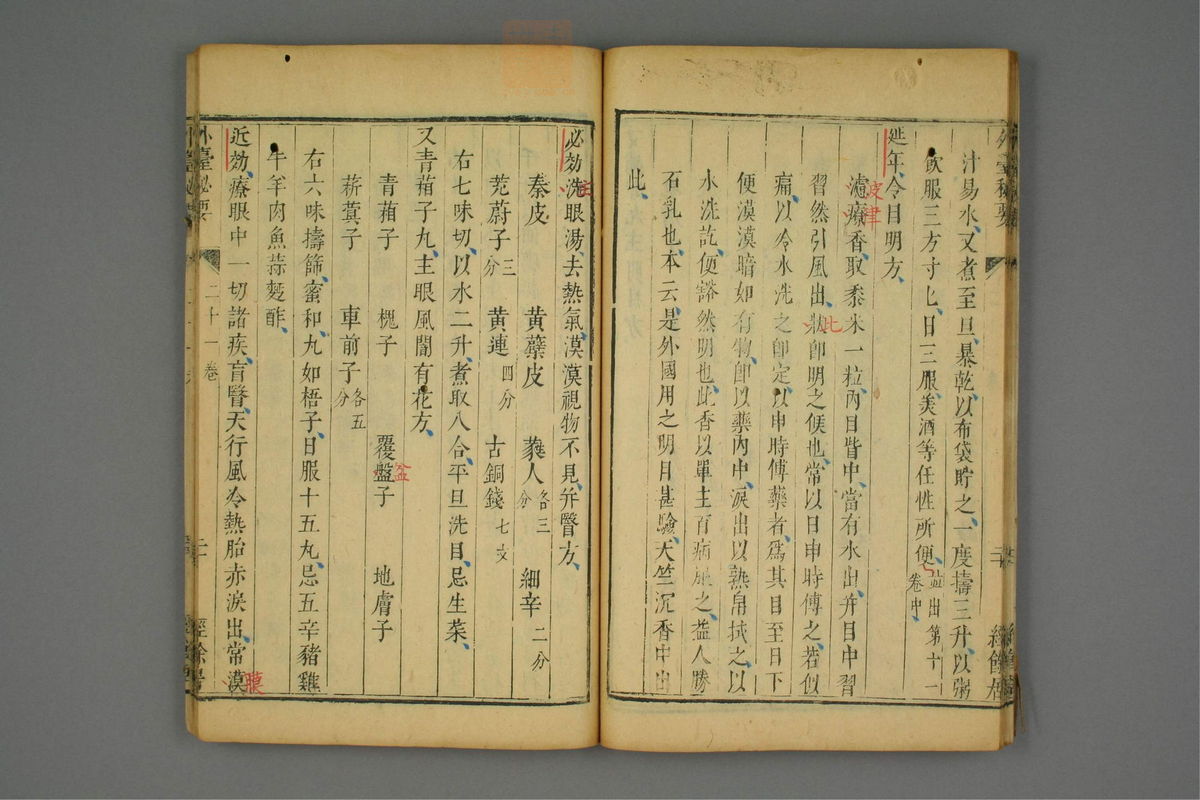 汁易水又煮至旦暴乾以布袋貯之一度擣三升以粥
飲服三方寸匕日三服美酒等任性所便並出第十一卷中
延年令目明方
波律
濾療香取黍米一粒內目眥中當有水出并目中習
習然引風出狀即明之候也常以日申時傅之若似
此
痛以冷水洗之即定以申時傅藥者為其目至日下
便漠漠暗如有物即以藥內中淚出以熟帛拭之以
水洗訖便豁然明也此香以單主百病服之益人勝
石乳也本云是外國用之明目甚驗天竺沉香中出
此
必効洗眼湯去熱氣漠漠視物不見并瞖方
秦皮 黃蘗皮 蕤人各三分 細辛二分
茺蔚子三分 黃連四分 古銅錢七文
右七味切以水二升煮取八合平旦洗目忌生菜
又青葙子丸主眼風闇有花方
青葙子 槐子 覆盤子 地膚子
盆
菥蓂子 車前子各五分
右六味擣篩蜜和丸如梧子日服十五丸忌五辛豬雞
牛羊肉魚蒜麪酢
近効療眼中一切諸疾盲瞖天行風冷熱胎赤淚出常漠
膜
外臺秘要 二十一卷 二 經餘居